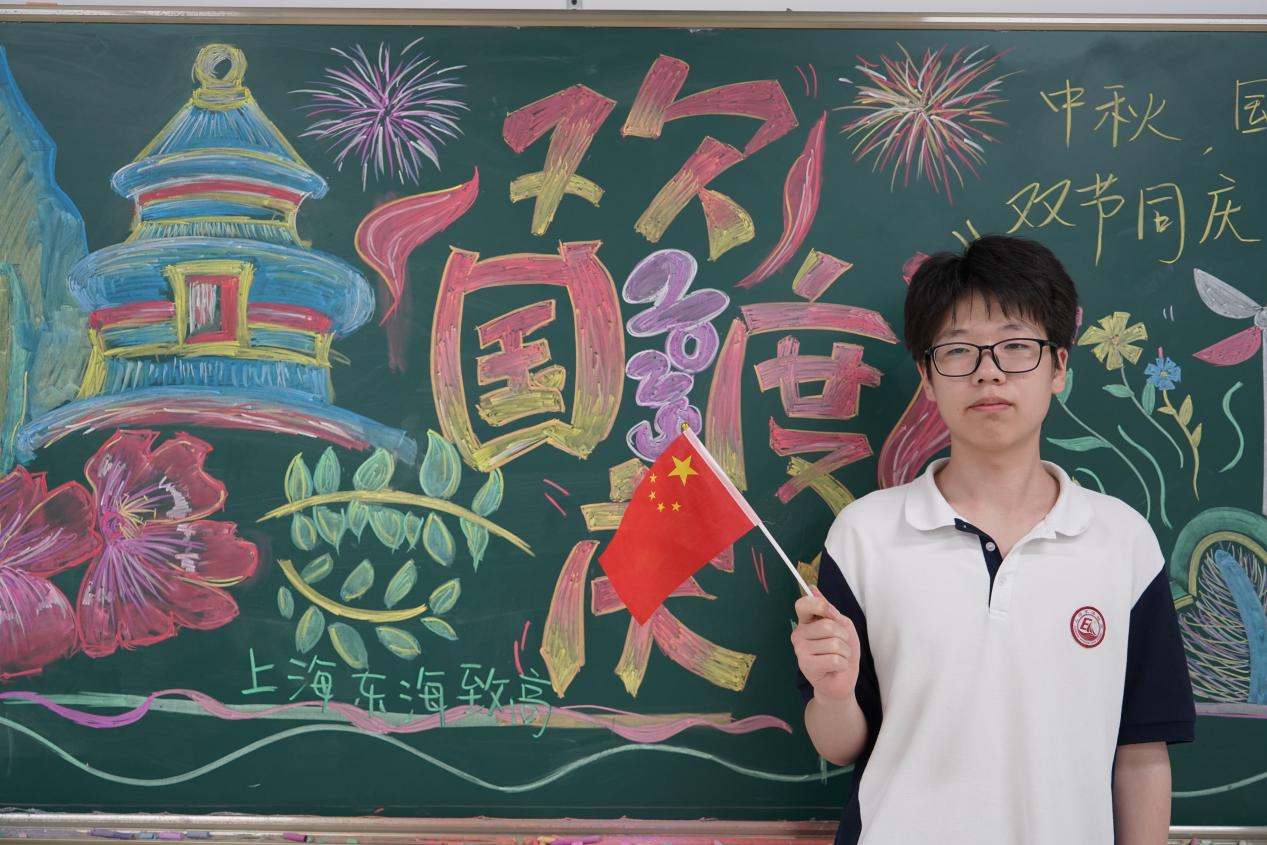 欢
国 2025 度
庆
中秋 国
双节同庆
上海东海致高